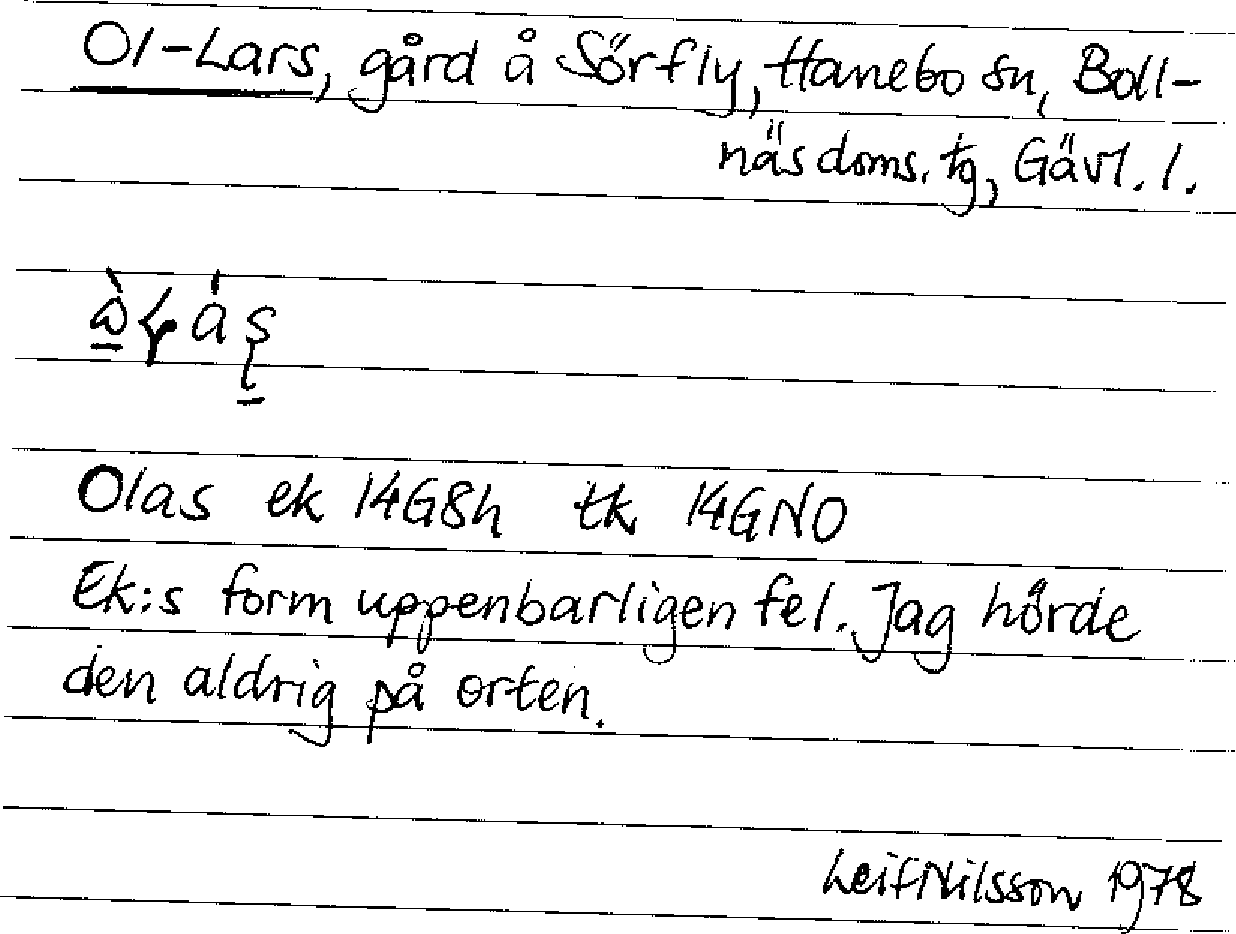 Ol-Lars, gård å Sörfly, Hanebo sn, Boll-
näs doms. tg, Gävl. l.
Olas ek 14G8h tk 14GNO
Ek:s form uppenbarligen fel. Jag hörde
den aldrig på orten.
Leif Nilsson 1978